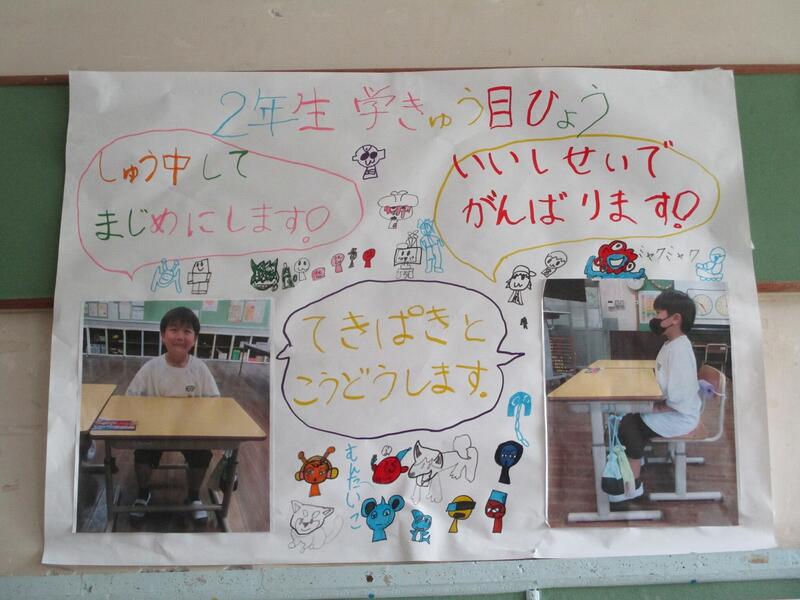 2年生 学きゅう目ひょう
しゅう中して
まじめにします!
いいしせいで
がんばります!
ミャクミャク
てきぱきと
こうどうします。